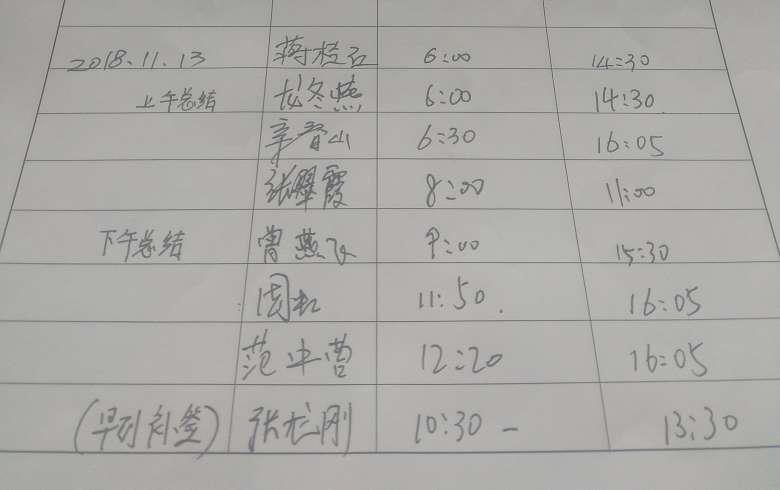 2018.11.13 蒋桂石 6:00 14:30
上午总结 龙冬燕 6:00 14:30
辛春山 6:30 16:05
张翠霞 8:00 11:00
下午总结 曾燕飞 9:00 15:30
周松 11:50 16:05
范中营 12:20 16:05
(早到补签) 张龙刚 10:30 - 13:30